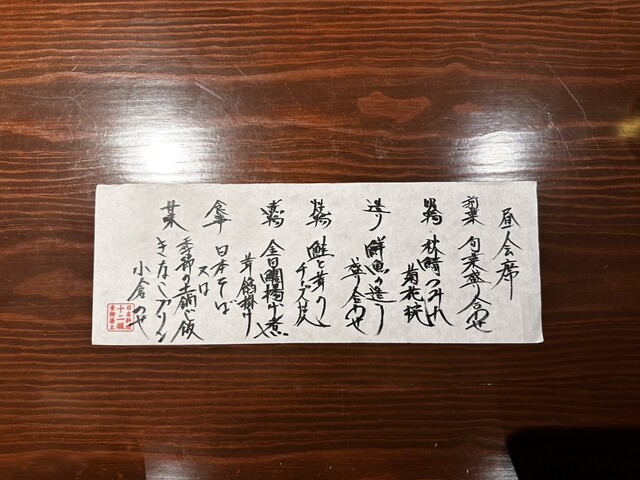 昼会席
前菜 旬菜盛り合わせ
椀 秋鯖つみれ
菊花椀
造り 鮮魚の造り
盛り合わせ
焼物 鮭と茸の
チーズ焼
煮物 金目鯛揚げ煮
茸餡掛け
食事 日本そば
又は
季節の土鍋ご飯
甘味 きなこプリン
小倉のせ
日本料理
十二颯